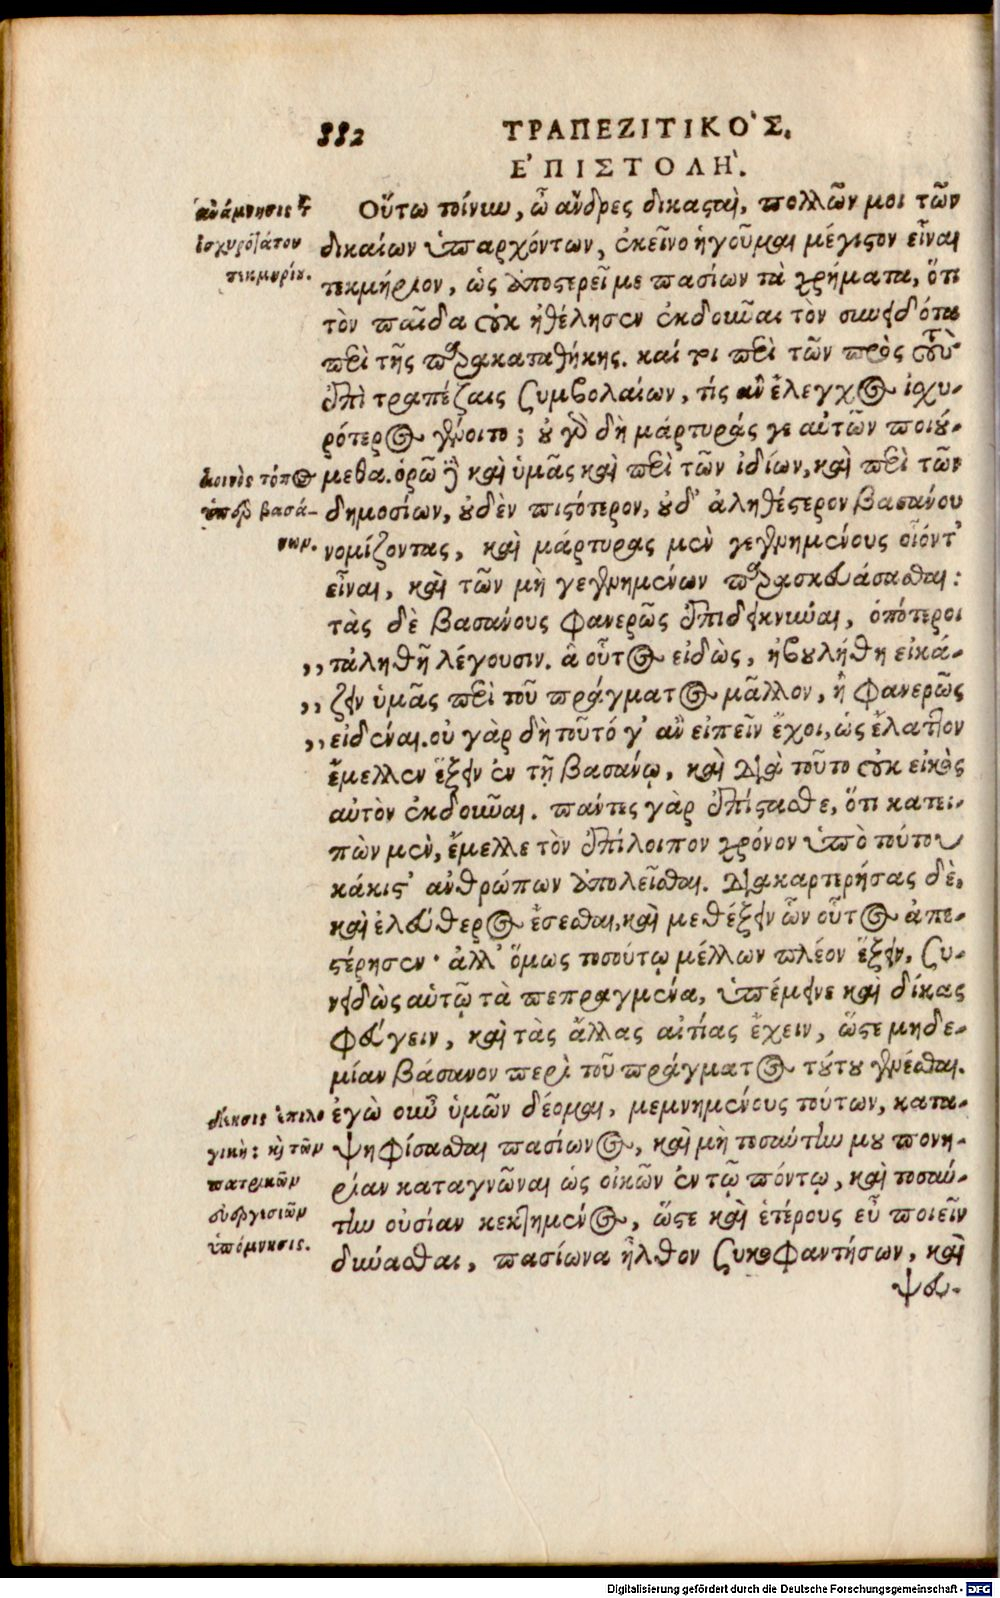 882
ΤΡΑΠΕΖΙΤΙΚΟ'Σ.
Ε'ΠΙΣΤΟΛΗ'.
ἀνάμνησις τ
ἰσχυροτάτου
τεκμηρίου.
Οὕτω τοίνυν, ὦ ἄνδρες δικασταὶ, πολλῶν μοι τῶν
δικαίων ὑπαρχόντων, ἐκεῖνο ἡγοῦμαι μέγιστον εἶναι
τεκμήριον, ὡς ἀποστερεῖ με πασίων τὰ χρήματα, ὅτι
τὸν παῖδα οὐκ ἠθέλησεν ἐκδοῦναι τὸν συνειδότα
περὶ τῆς παρακαταθήκης. καί τοι περὶ τῶν πρὸς τοὺς
ἐπὶ τραπέζαις συμβολαίων, τίς ἂν ἔλεγχος ἰσχυ-
ρότερος γένοιτο; οὐ γὰρ δὴ μάρτυράς γε αὐτῶν ποιού-
κοινὸς τόπος
ὑπὲρ βασά-
νων.
μεθα. ὁρῶ δὲ καὶ ὑμᾶς καὶ περὶ τῶν ἰδίων, καὶ περὶ τῶν
δημοσίων, οὐδὲν πιστότερον, οὐδ' ἀληθέστερον βασάνου
νομίζοντας, καὶ μάρτυρας μὲν γεγενημένους οἷόντ'
εἶναι, καὶ τῶν μὴ γεγενημένων παρασκευάσασθαι:
τὰς δὲ βασάνους φανερῶς ἐπιδεικνύναι, ὁπότεροι
,, τἀληθῆ λέγουσιν. ἃ οὗτος εἰδὼς, ἠβουλήθη εἰκά-
,, ζειν ὑμᾶς περὶ τοῦ πράγματος μᾶλλον, ἢ φανερῶς
,, εἰδέναι. οὐ γὰρ δὴ τοῦτό γ' ἂν εἰπεῖν ἔχοι, ὡς ἔλαττον
ἔμελλεν ἕξειν ἐν τῇ βασάνῳ, καὶ διὰ τοῦτο οὐκ εἰκὸς
αὐτὸν ἐκδοῦναι. πάντες γὰρ ἐπίστασθε, ὅτι κατει-
πὼν μὲν, ἔμελλε τὸν ἐπίλοιπον χρόνον ὑπὸ τούτου
κάκιστ' ἀνθρώπων ἀπολεῖσθαι. διακαρτερήσας δὲ,
καὶ ἐλεύθερος ἔσεσθαι, καὶ μεθέξειν ὧν οὗτος ἀπε-
στέρησεν· ἀλλ' ὅμως τοσούτῳ μέλλων πλέον ἕξειν, συ-
νειδὼς αὑτῷ τὰ πεπραγμένα, ὑπέμεινε καὶ δίκας
φεύγειν, καὶ τὰς ἄλλας αἰτίας ἔχειν, ὥστε μηδε-
μίαν βάσανον περὶ τοῦ πράγματος τούτου γενέσθαι.
δέησις ἐπιλο
γική: καὶ τῶν
πατρικῶν
εὐεργεσιῶν
ὑπόμνησις.
ἐγὼ οὖν ὑμῶν δέομαι, μεμνημένους τούτων, κατα-
ψηφίσασθαι πασίωνος, καὶ μὴ τοσαύτην μου πονη-
ρίαν καταγνῶναι ὡς οἰκῶν ἐν τῷ πόντῳ, καὶ τοσαύ-
την οὐσίαν κεκτημένος, ὥστε καὶ ἑτέρους εὖ ποιεῖν
δύνασθαι, πασίωνα ἦλθον συκοφαντήσων, καὶ
ψευ-
Digitalisierung gefördert durch die Deutsche Forschungsgemeinschaft - DFG